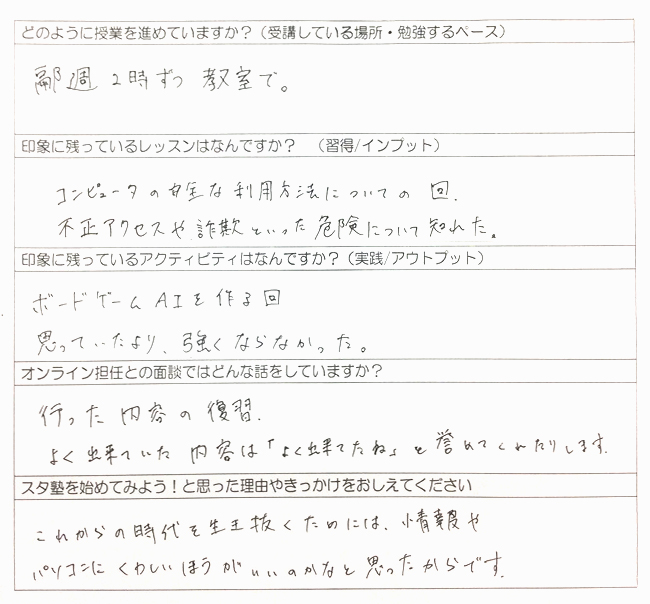 どのように授業を進めていますか？（受講している場所・勉強するペース）
隔週2時ずつ 教室で。
印象に残っているレッスンはなんですか？ （習得/インプット）
コンピュータの安全な利用方法についての回.
不正アクセスや詐欺といった危険について知れた。
印象に残っているアクティビティはなんですか？（実践/アウトプット）
ボードゲームAIを作る回
思っていたより、強くならなかった。
オンライン担任との面談ではどんな話をしていますか？
行った内容の復習.
よく出来ていた内容は「よく出来てたね」と誉めてくれたりします.
スタ塾を始めてみよう！と思った理由やきっかけをおしえてください
これからの時代を生き抜くためには、情報や
パソコンにくわしいほうがいいのかなと思ったからです.